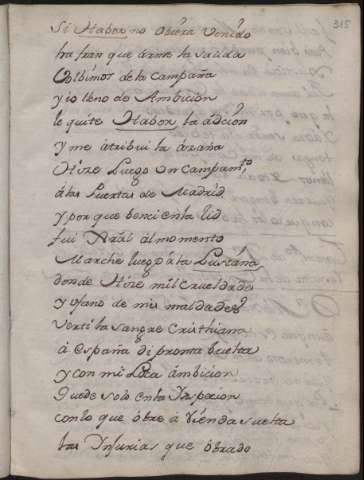 315
Si Nabor no obiera venido
ha fran que darnte la salida
Volbimos de la campaña
y io lleno de Ambicion
le quite Nabor la accion
y me atribui la azaña
Hize Luego un Campamto
á las Puertas de Madrid
y por que benci en la lid
fui Azál al momento
Marché luego á la Lusitana
donde Hize mil crueldades
y ufano de mis maldades
verti la sangre Cristhiana
á españa di pronta buelta
y con mi Loca ambicion
Quede solo en la Ynvacion
con lo que obre á rienda suelta
las Injurias que obrado